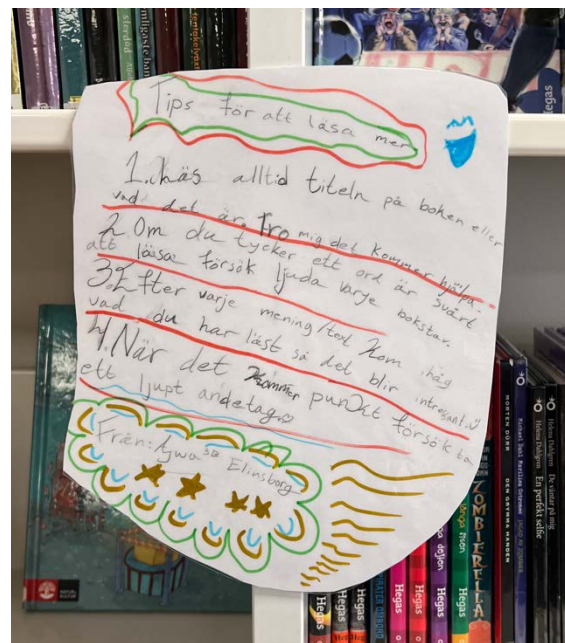 Tips för att läsa mer
1. Läs alltid titeln på boken eller
vad det är. Tro mig det kommer hjälpa.
2. Om du tycker ett ord är svårt
att läsa försök ljuda varje bokstav.
3. Efter varje mening/text kom ihåg
vad du har läst så det blir intresant.
4. När det kommer punkt försök ta
ett ljupt andetag.
Från: Ajwa 3a Elinsborg
Hegas
MORTEN DÜRR DEN GRYMMA HANDEN
Helena Dahlgren En perfekt selfie
Helena Dahlgren De väntar på mig
ZOMBIERELLA
Hegas
Hegas
Hegas
Hegas
Hegas
NATUR KULTUR